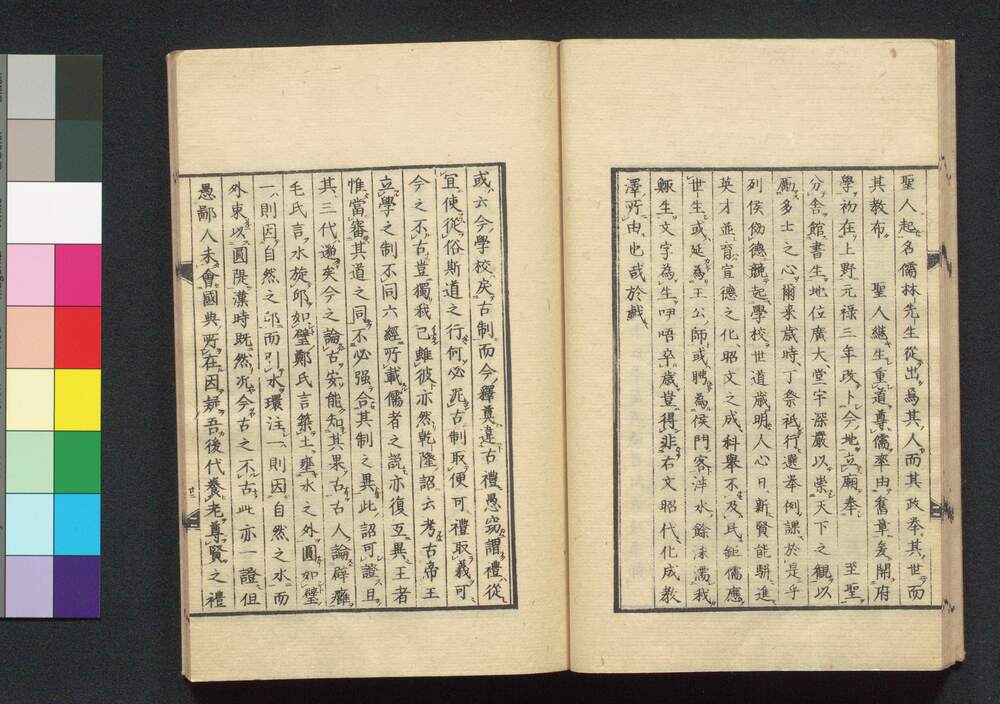 聖人起名儒林先生從出為其人而其政奉其世而
其教布　聖人繼生重道尊儒率由舊章爰開府
學初在上野元祿三年改卜今地立廟奉　至聖
分舍館書生地位廣大堂宇深嚴以崇天下之觀以
勵多士之心爾來歲時丁祭祗行選举例課於是乎
列侯傚德競起學校世道歲明人心日新賢能駢進
英才並育宣德之化昭文之成科舉不及民鉅儒應
世生或延為王公師或聘為侯門客泮水餘沫濡我
鯫生文字為生呻唔卒歲豈得非右文昭代化成教
澤所由也哉於戲
或云今學校矣古制而今釋奠違古禮愚竊謂禮從
宜使從俗斯道之行何必泥古制取便可禮取義可
今之不古豈獨我已雖彼亦然乾隆詔云考古帝王
立學之制不同六經所載儒者之説亦復互異王者
惟當審其道之同不必强合其制之異此詔可證且
其三代邈矣今之論古安能知其果古古人論辟雍
毛氏言水旋邱如璧鄭氏言築土壅水之外圓如璧
一則因自然之邱而引水環注一則因自然之水而
外東以圓隄漢時既然况今古之不古此亦一證但
愚鄙人未會國典所在因疑吾後代養老尊賢之禮